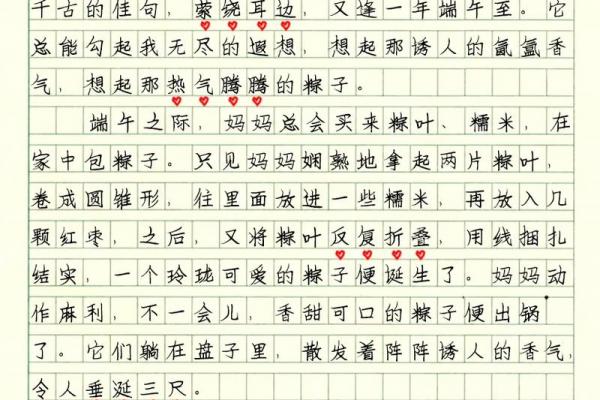 千古的佳句，萦绕耳边，又逢一年端午至。它
总能勾起我无尽的遐想，想起那诱人的氤氲香
气，想起那热气腾腾的粽子。
端午之际，妈妈总会买来粽叶、糯米，在
家中包粽子。只见妈妈娴熟地拿起两片粽叶，
卷成圆锥形，往里面放进一些糯米，再放入几
颗红枣，之后，又将粽叶反复折叠，用线捆扎
结实，一个玲珑可爱的粽子便诞生了。妈妈动
作麻利，不一会儿，香甜可口的粽子便出锅
了。它们躺在盘子里，散发着阵阵诱人的香气，
令人垂涎三尺。